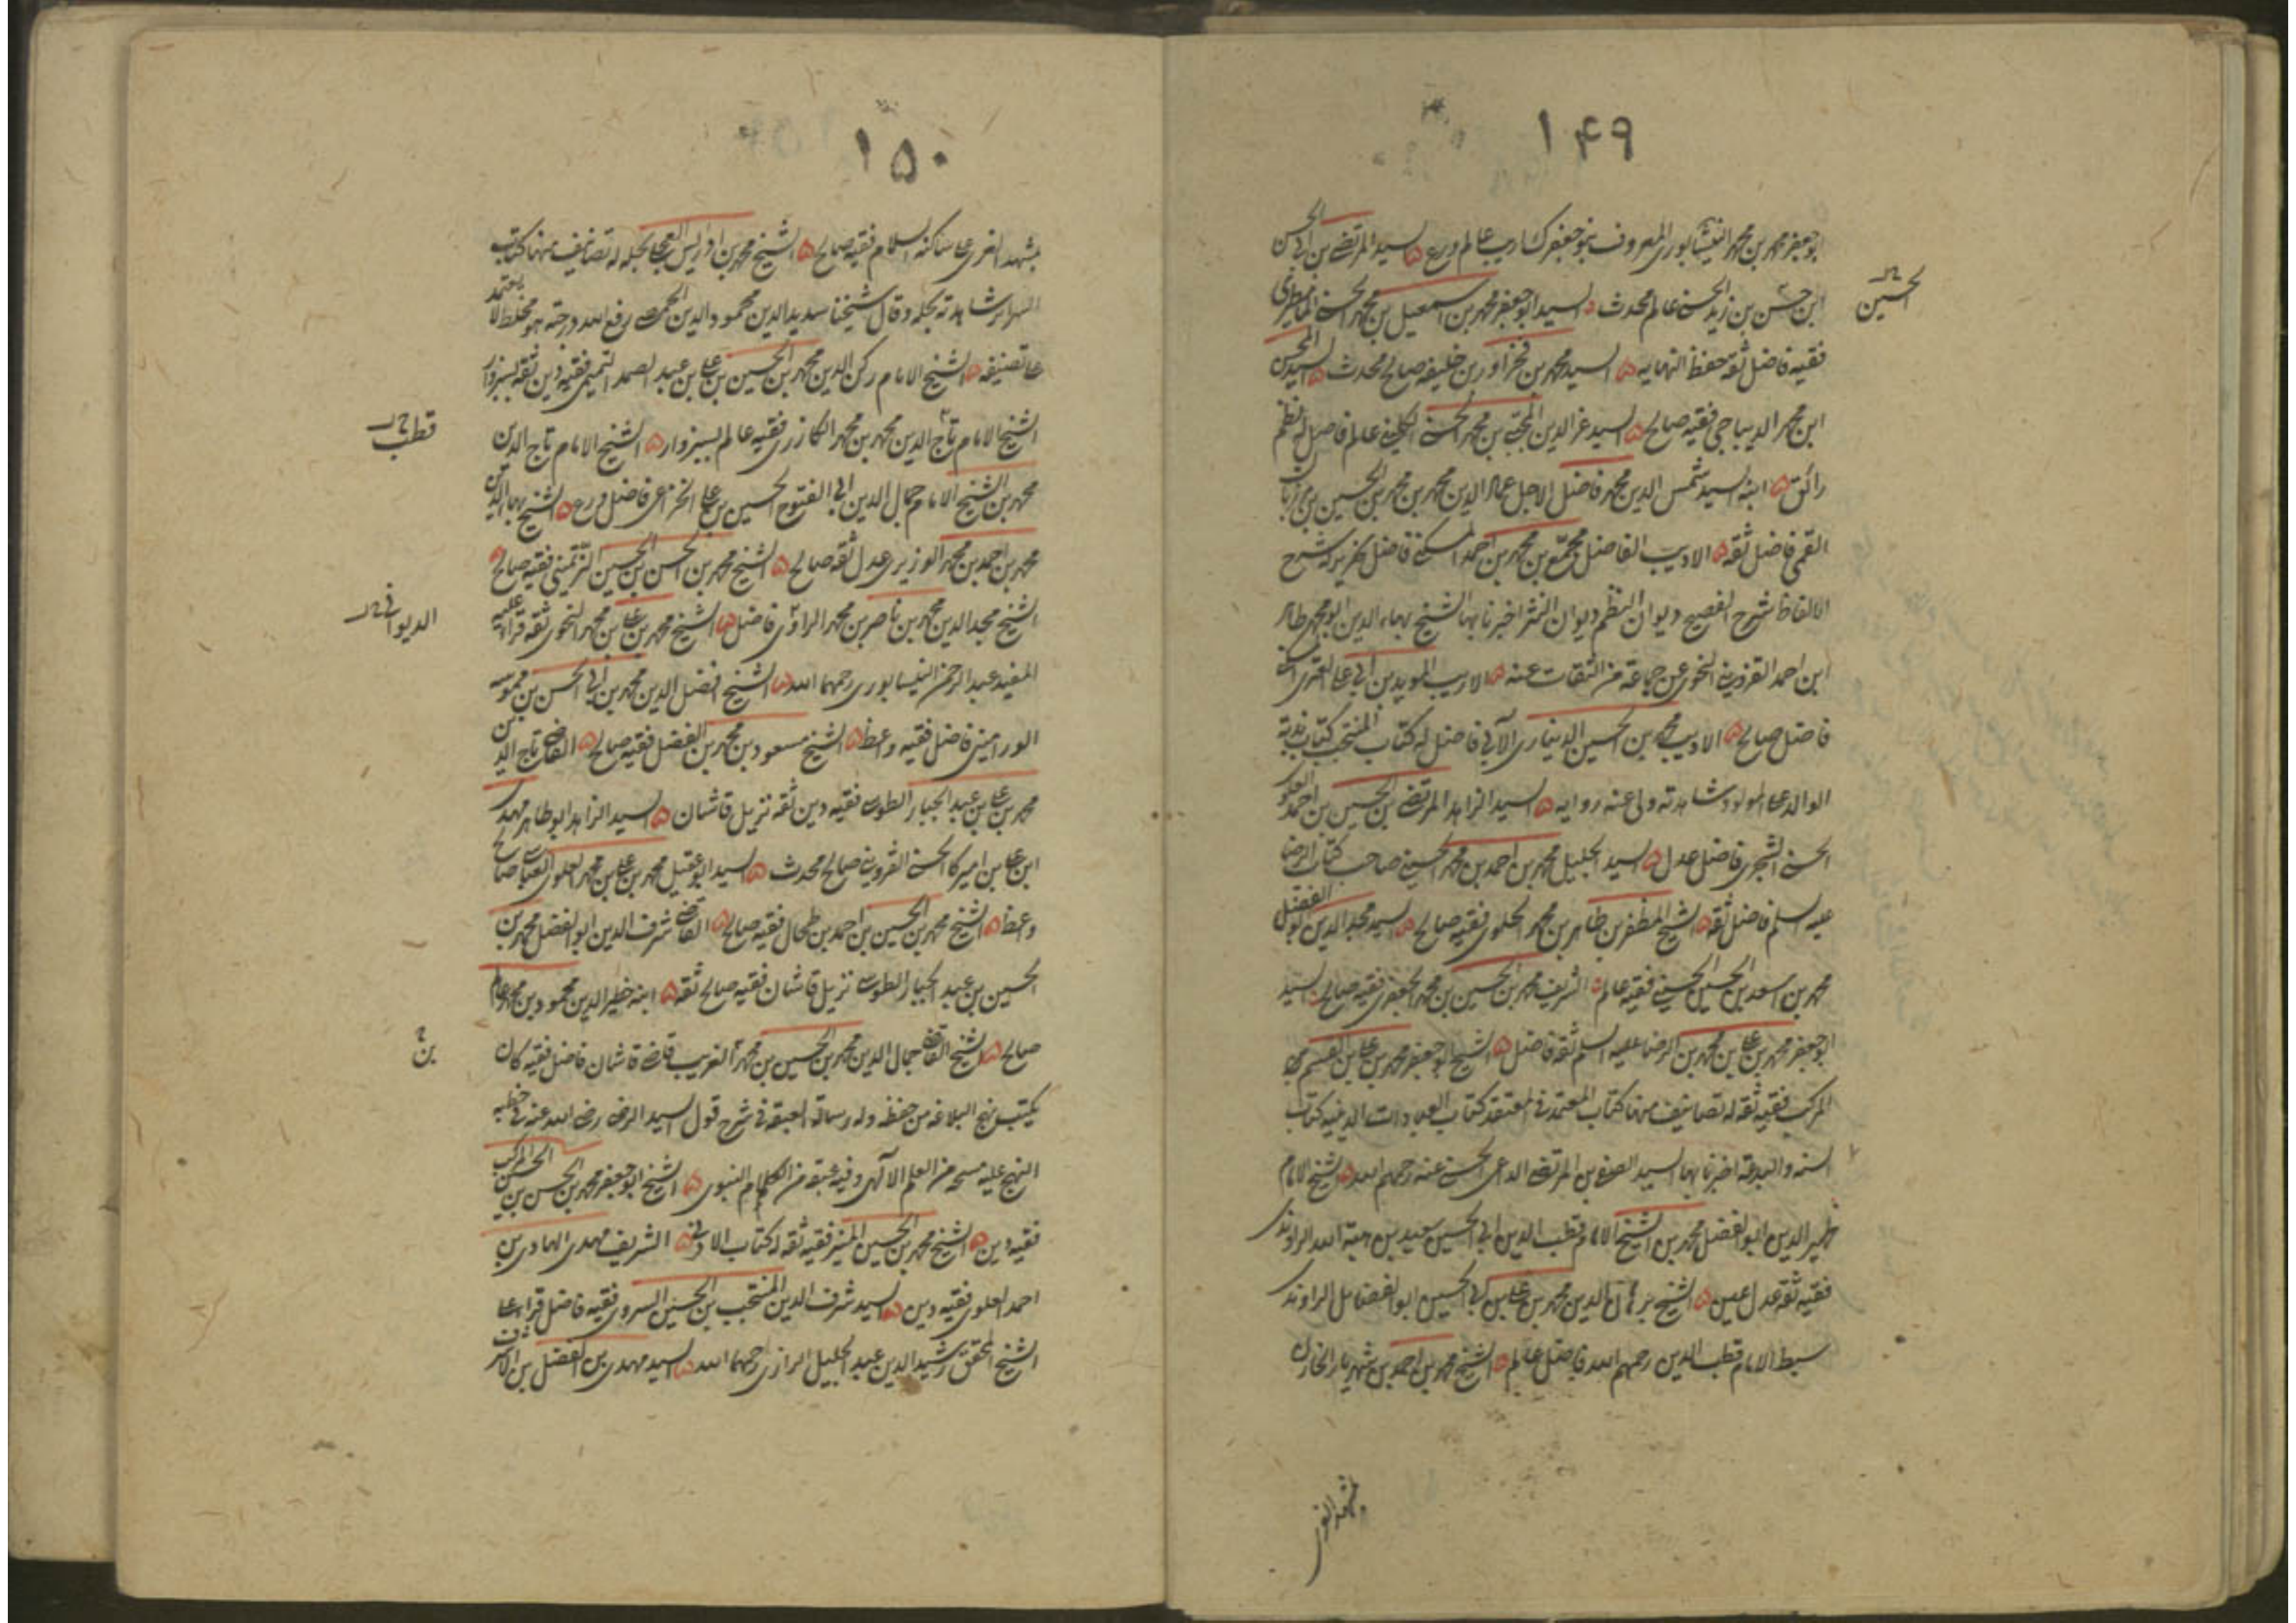 ١۴٩
ابوجعفر محمد بن محمد النيشابورى المعروف ببوجعفرك اديب عالم ورع ه السيد المرتضى بن ابى الحسن
الحسين
ابن حسن بن زيد الحسنى عالم محدث ه السيد ابوجعفر محمد بن اسمعيل بن محمد الحسنى المامطيرى
فقيه فاضل ثقة حفظ النهايه ه السيد محمد بن فخراور بن خليفه صالح محدث ه السيد المحسن
ابن محمد الديباجى فقيه صالح ه السيد عز الدين المجتبى بن محمد الحسنى الكلينى عالم فاضل له نظم
رائق ه ابنه السيد شمس الدين محمد فاضل الاجل عماد الدين محمد بن محمد بن الحسين بن مرزبان
القمى فاضل ثقه ه الاديب الفاضل مجمع بن محمد بن احمد المسكنى فاضل له شرح
الالفاظ شرح الفصيح ديوان النظم ديوان النثر اخبرنا بها الشيخ بهاء الدين ابو محمد طاهر
ابن احمد القزوينى النحوى عن جماعة من الثقات عنه ه الاديب المويد بن ابى على المقرى
فاضل صالح ه الاديب محمد بن الحسين الدينارى الآبى فاضل له كتاب المنتخب كتاب ندبة
الوالد على المولود شاهدته ولى عنه رواية ه السيد الزاهد المرتضى بن الحسين بن احمد العلوى
الحسنى الشجرى فاضل عدل ه السيد الجليل محمد بن احمد بن محمد الحسينى صاحب كتاب الرضا
عليه السلم فاضل ثقة ه الشيخ المظفر بن طاهر بن محمد الحلبى فقيه صالح ه السيد مجد الدين ابو الفضل
محمد بن اسعد بن الحسين الحسينى فقيه عالم ه الشريف محمد بن الحسين بن محمد الجعفرى فقيه صالح ه السيد
ابوجعفر محمد بن على بن محمد بن الرضا عليه السلم ثقة فاضل ه الشيخ ابوجعفر محمد بن على بن
المركب فقيه ثقه له تصانيف منها كتاب المعتمد فى المعتقد كتاب العبادات الدينيه كتاب
السنه والبدعة اخبرنا بها السيد الصفى بن المرتضى الداعى الحسنى عنه رحمهم الله ه الشيخ الامام
ظهير الدين ابو الفضل محمد بن الشيخ الامام قطب الدين ابى الحسين سعيد بن هبة الله الراوندى
فقيه ثقة عدل عين ه الشيخ برهان الدين محمد بن على بن ابى الحسين ابو الفضايل الراوندى
سبط الامام قطب الدين رحمهم الله فاضل عالم ه الشيخ محمد بن احمد بن شهريار الخازن
بمشهد الغرى
١۵٠
بمشهد الغرى على ساكنه السلام فقيه صالح ه الشيخ محمد بن ادريس العجلى بحله له تصانيف منها كتاب
السراير شاهدته بحله وقال شيخنا سديد الدين محمود الدين الحمصى رفع الله درجته هو مخلط لا يعتمد
على تصنيفه ه الشيخ الامام ركن الدين محمد بن الحسين بن على بن عبد الصمد التميمى فقيه دين ثقه بسبزوار
قطب
الشيخ الامام تاج الدين محمد بن محمد الكازرى فقيه عالم بسبزوار ه الشيخ الامام تاج الدين
محمد بن الشيخ الامام جمال الدين ابى الفتوح الحسين بن على الخزاعى فاضل ورع ه الشيخ بهاء الدين
محمد بن احمد بن محمد الوزيرى عدل ثقه صالح ه الشيخ محمد بن الحسن بن الحسين فقيه صالح
الديوانى
الشيخ مجد الدين محمد بن ناصر بن محمد الراوى فاضل ه الشيخ محمد بن على بن محمد النحوى ثقه قرا عليه
المفيد عبد الرحمن النيسابورى رحمهما الله ه الشيخ افضل الدين محمد بن ابى الحسن بن مموسه
الورامينى فاضل فقيه واعظ ه الشيخ مسعود بن محمد بن الفضل فقيه صالح ه القاضى تاج الدين
محمد بن على بن عبد الجبار الطوسى فقيه دين ثقه نزيل قاشان ه السيد الزاهد ابو طاهر مهدى
ابن على بن اميركا الحسنى القزوينى صالح محدث ه السيد ابو عقيل محمد بن على بن محمد العلوى العباسى صالح
واعظ ه الشيخ محمد بن الحسين بن احمد بن طحال فقيه صالح ه القاضى شرف الدين ابو الفضل محمد بن
الحسين بن عبد الجبار الطوسى نزيل قاشان فقيه صالح ثقه ه ابنه خطير الدين محمود بن محمد عالم
بن
صالح ه الشيخ القاضى جمال الدين محمد بن الحسين بن محمد الغريب قاضى قاشان فاضل فقيه كان
يكتب نهج البلاغه من حفظه وله رسالة العبقة فى شرح قول السيد الرضى رضى الله عنه فى خطبه
النهج عليه مسحة من العلم الالهى وفيه عبقة من الكلام النبوى ه الشيخ ابو جعفر محمد بن الحسن بن الحسن المركب
فقيه دين ه الشيخ محمد بن الحسين المنير فقيه ثقه له كتاب الادوان ه الشريف مهدى الهادى بن
احمد العلوى فقيه دين ه السيد شرف الدين المنتجب بن الحسين السروى فقيه فاضل قرا على
الشيخ المحقق رشيد الدين عبد الجليل الرازى رحمهما الله ه السيد مهدى بن الفضل بن الاشرف